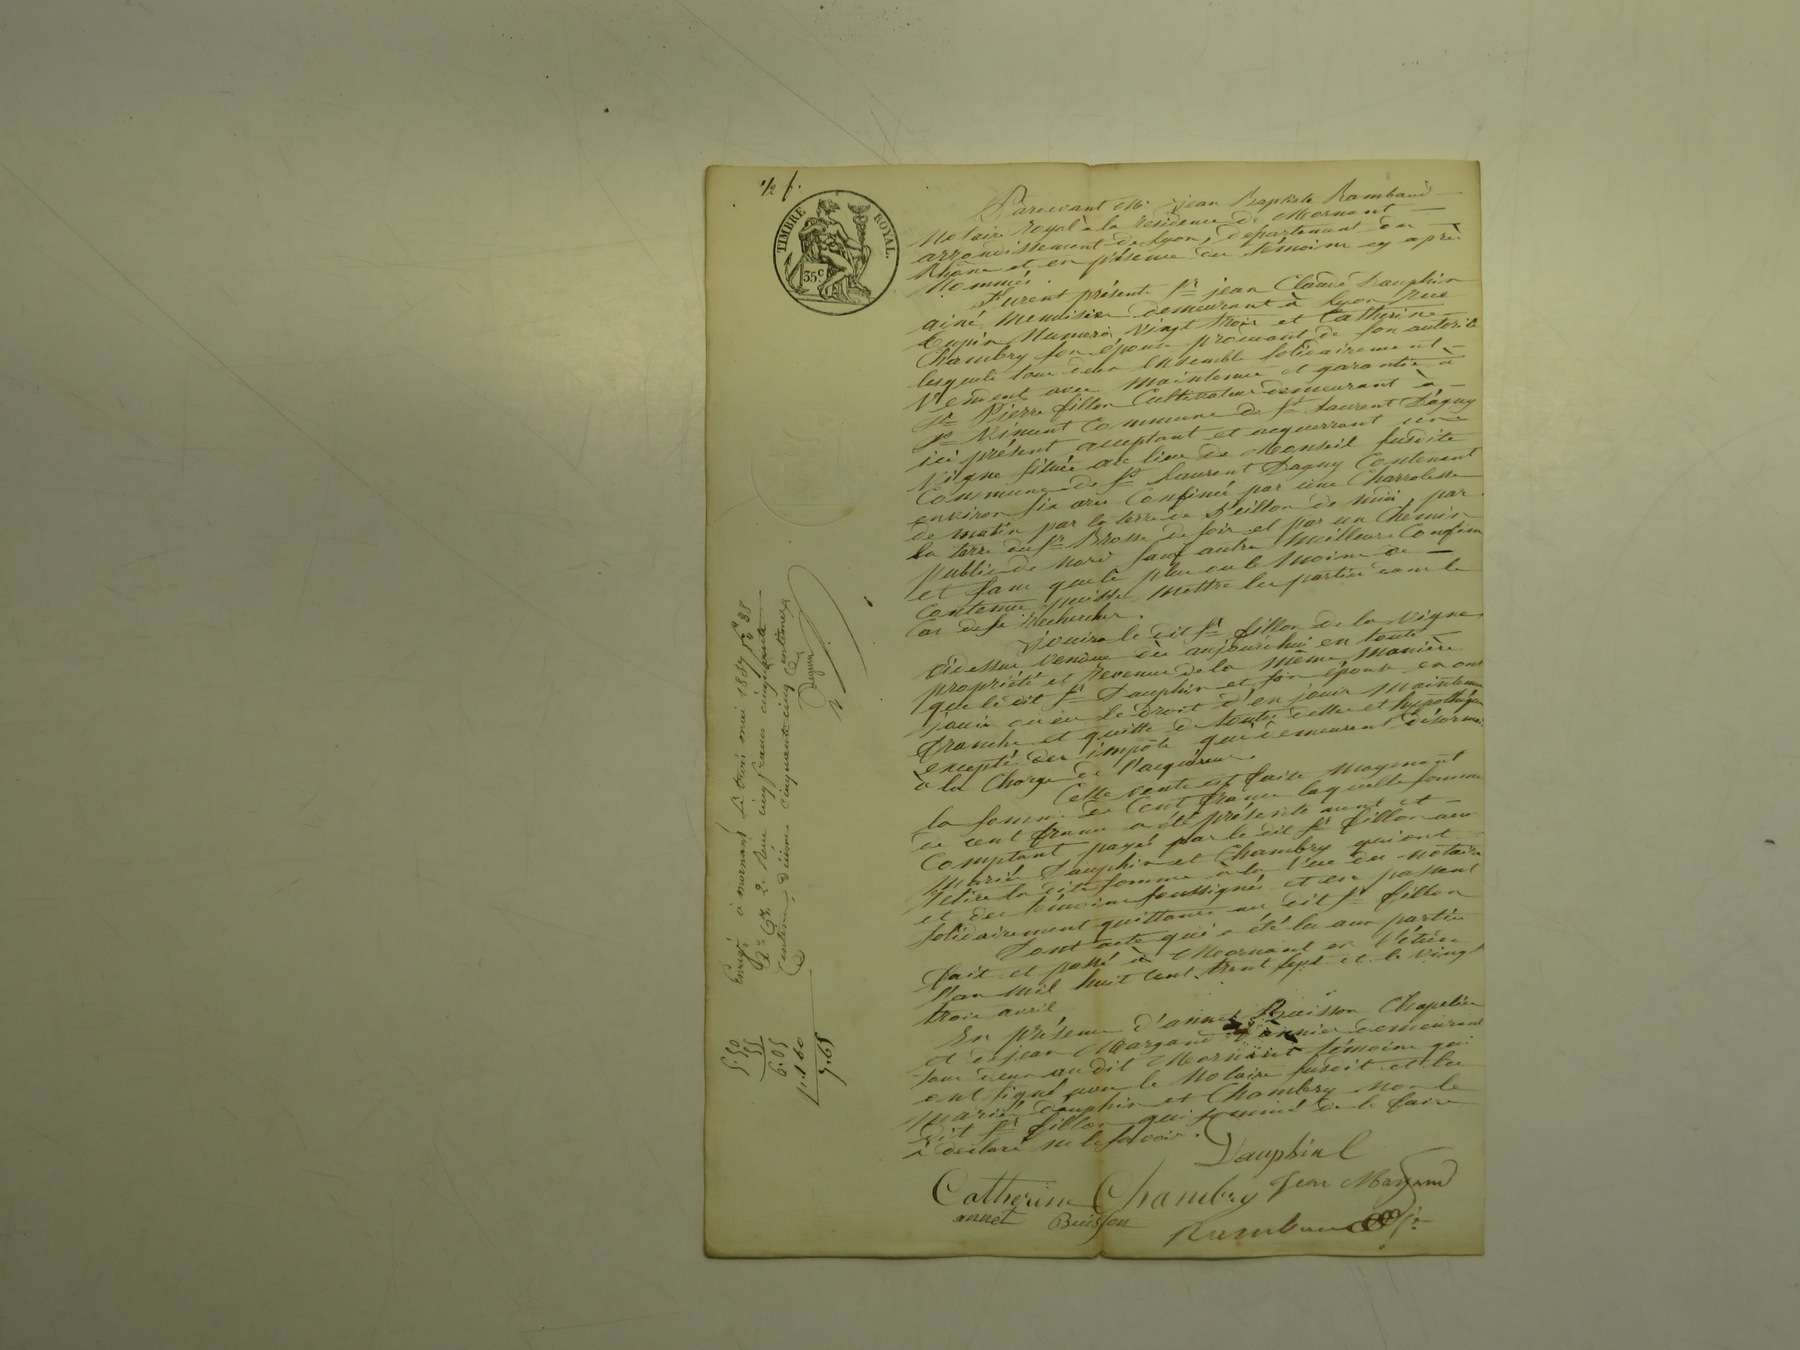 1/2 f.
TIMBRE ROYAL.
35 c
Pardevant Me jean Baptiste Rambaud
Notaire Royal à la Résidence de Mornant
arrondissement de Lyon, département du
Rhône et en présence des témoins cy après
Nommés
Furent présents Sr jean Claude Dauphin
ainé Menuisier demeurant à Lyon Rue
Numero vingt trois et Catherine
Chambry son épouse procédant de son autorité
lesquels tous deux ensemble solidairement
Vendent avec maintenue et garantie à
Sr Pierre fillon Cultivateur demeurant à
St Vincent Commune de St Laurent Dagny
ici présent acceptant et acquerrant une
Vigne située au lieu de Monseil susdite
Commune de St Laurent Dagny Contenant
environ six ares Confinée par une Charrolesse
de matin par la terre de Sr fillon de midi, par
la terre du Sr Brosse de soir et par un Chemin
public de nord sauf autres meilleurs Confins
et sans que le plus ou le moins de
Contenue puisse mettre les parties dans le
Cas de se Rechercher.
Jouira le dit Sr fillon de la vigne
Cidessus vendue dès aujourd'hui en toute
propriété et Revenus de la même manière
que le dit Sr Dauphin et son épouse en ont
joui ou eu le droit d'en jouir maintenue
franche et quitte de toute dette et hypothèque
excepté des impôts qui demeurent désormais
à la Charge de l'acquéreur.
Cette vente est faite moyenant
la somme de Cent francs laquelle somme
de cent francs a été présentement et
Comptant payée par le dit Sr fillon aux
Mariés Dauphin et Chambry qui ont
Retiré la dite somme à la Vue du Notaire
et des témoins soussignés et en passent
solidairement quittance au dit Sr fillon
Dont acte qui a été lu aux parties
fait et passé à Mornant en l'étude
l'an mil huit cent trent sept et le vingt
trois avril
En présence d'annet Buisson Chapelier
et de jean Margand demeurant
tous deux au dit Mornant témoins qui
ont signé avec le Notaire susdit et les
Mariés Dauphin et Chambry Non le
dit Sr fillon qui sommé de le faire
a déclaré ne le savoir.
Dauphin
Catherine Chambry Jean Margand
annet Buisson
Rambaud
Enregé à mornant Le trois mai 1837 fo 38
Ro C. 2. Reçu cinq francs cinquante
Centimes, dixième cinquante cinq Centimes
5.50
55
6.05
1.60
7.65